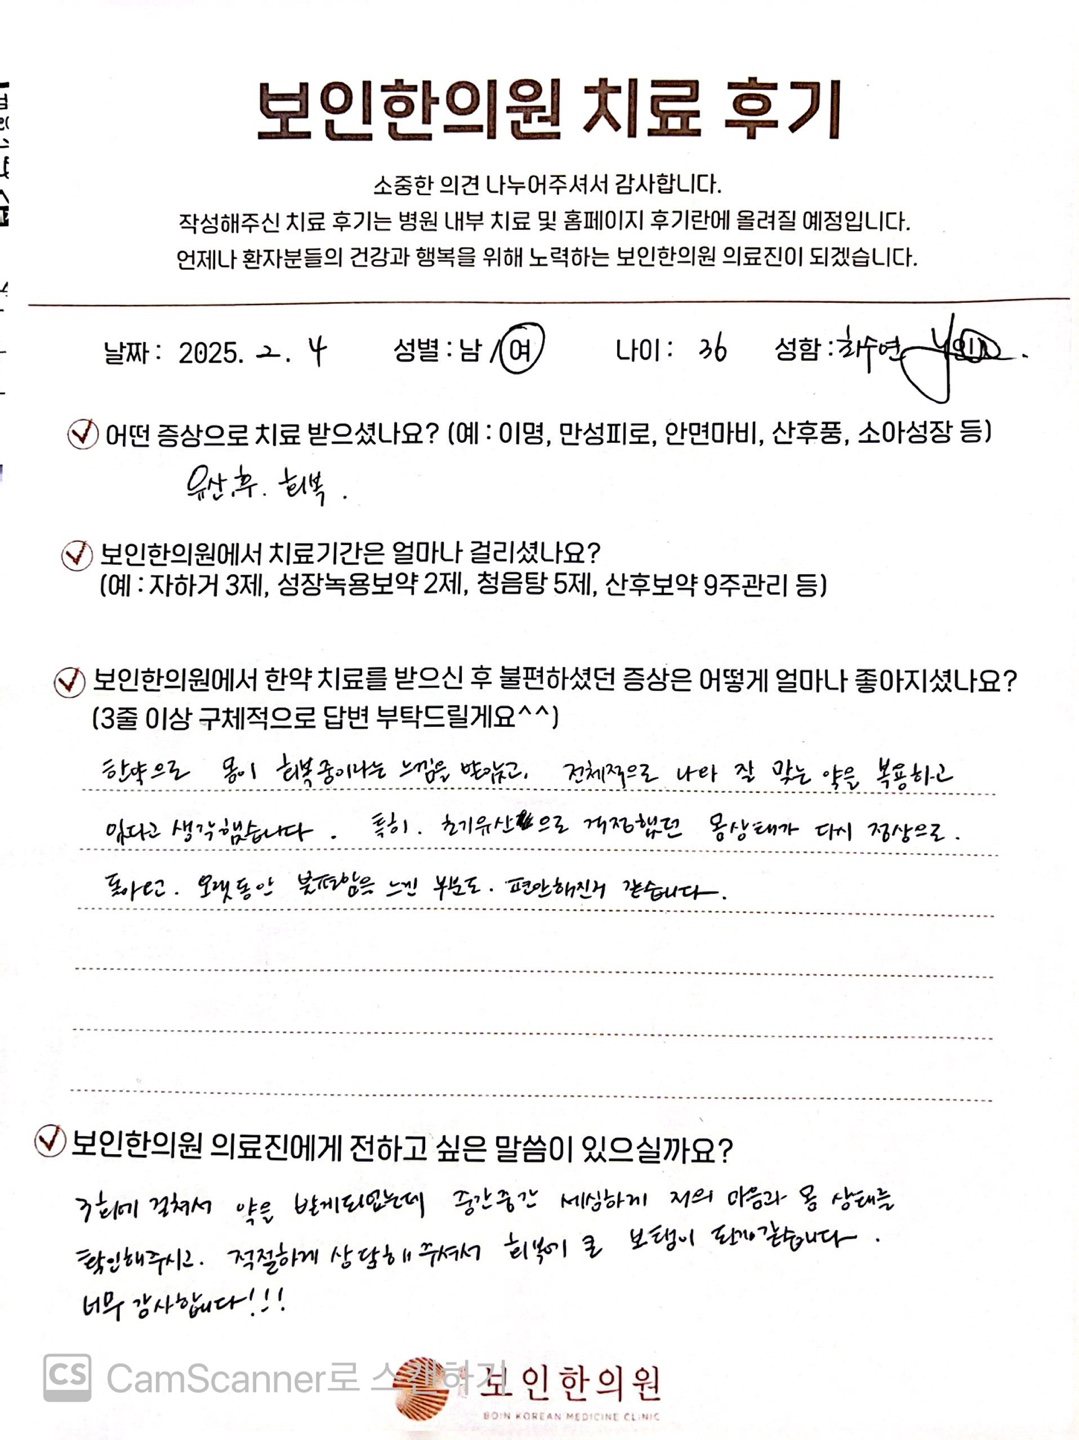 보인한의원 치료 후기
소중한 의견 나누어주셔서 감사합니다.
작성해주신 치료 후기는 병원 내부 치료 및 홈페이지 후기란에 올려질 예정입니다.
언제나 환자분들의 건강과 행복을 위해 노력하는 보인한의원 의료진이 되겠습니다.
날짜 : 2025. 2. 4 성별 : 남 / 여 나이 : 36 성함 :
어떤 증상으로 치료 받으셨나요? (예 : 이명, 만성피로, 안면마비, 산후풍, 소아성장 등)
유산.후. 회복.
보인한의원에서 치료기간은 얼마나 걸리셨나요?
(예 : 자하거 3제, 성장녹용보약 2제, 청음탕 5제, 산후보약 9주관리 등)
보인한의원에서 한약 치료를 받으신 후 불편하셨던 증상은 어떻게 얼마나 좋아지셨나요?
(3줄 이상 구체적으로 답변 부탁드릴게요^^)
한약으로 몸이 회복중이라는 느낌을 받았고, 전체적으로 나와 잘 맞는 약을 복용하고
있다고 생각했습니다. 특히. 초기유산으로 걱정했던 몸상태가 다시 정상으로.
돌아오고. 오랫동안 불편함을 느낀 부분도. 편안해진거 같습니다.
보인한의원 의료진에게 전하고 싶은 말씀이 있으실까요?
3회에 걸쳐서 약을 받게되었는데 중간중간 세심하게 저의 마음과 몸 상태를
확인해주시고. 적절하게 상담해주셔서 회복에 큰 보탬이 된거같습니다.
너무 감사합니다!!!
CS CamScanner로 스캔하기
보인한의원
BOIN KOREAN MEDICINE CLINIC